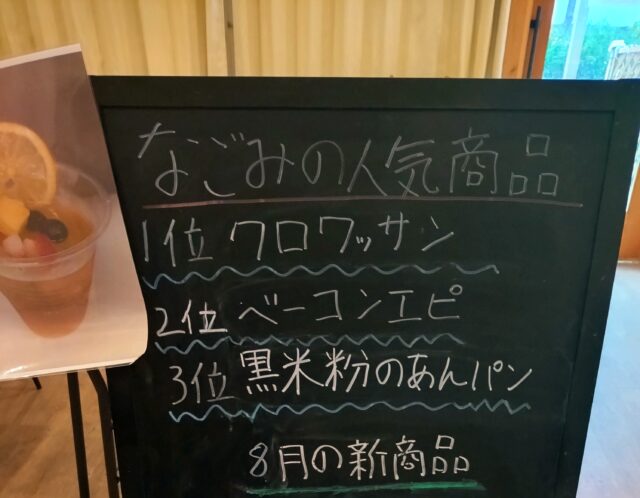 なごみの人気商品
1位 クロワッサン
2位 ベーコンエピ
3位 黒米粉のあんパン
8月の新商品